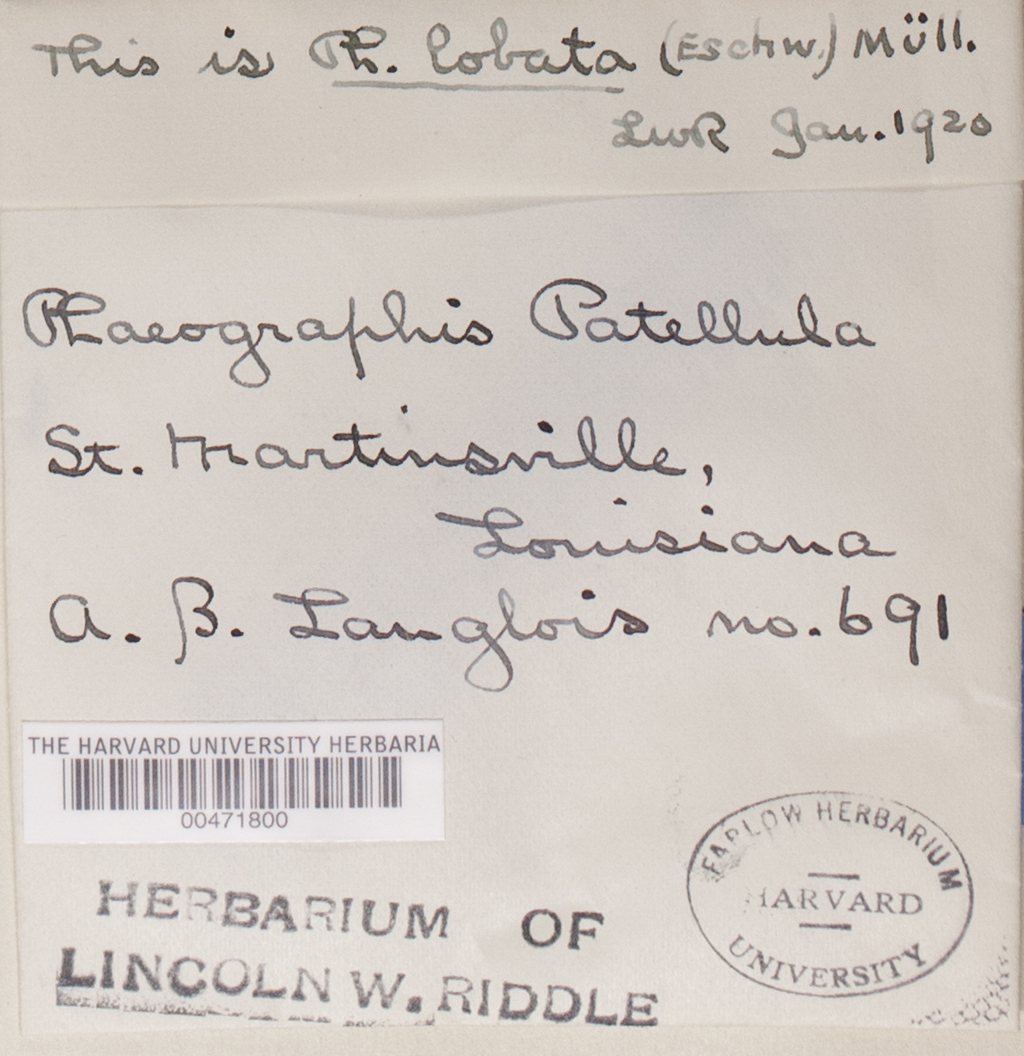 This is Ph. lobata (Eschw.) Müll.
LWR Jan. 1920
Phaeographis Patellula
St. Martinsville,
Louisiana
A. B. Langlois no. 691
THE HARVARD UNIVERSITY HERBARIA
00471800
FARLOW HERBARIUM
HARVARD
UNIVERSITY
HERBARIUM OF
LINCOLN W. RIDDLE